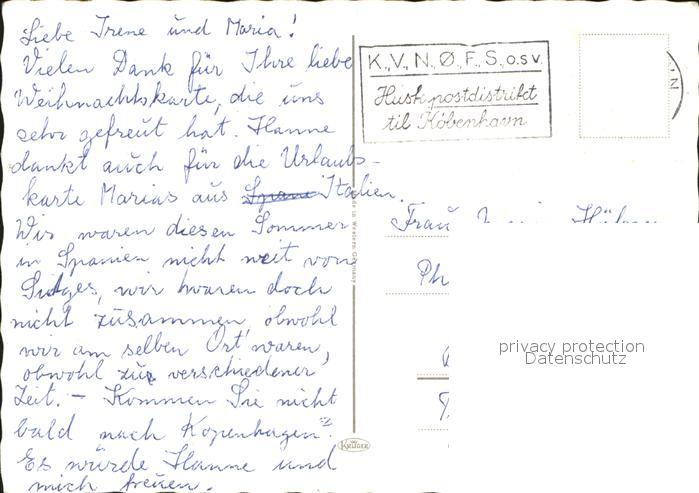 Liebe Irene und Maria!
Vielen Dank für Ihre liebe
Weihnachtskarte, die uns
sehr gefreut hat. Hanne
dankt auch für die Urlaubs-
karte Marias aus Italien.
Wir waren diesen Sommer
in Spanien nicht weit von
Sitges, wir waren doch
nicht zusammen, obwohl
wir am selben Ort waren,
obwohl zur verschiedener
Zeit. – Kommen Sie nicht
bald nach Kopenhagen?
Es würde Hanne und
mich freuen.
K.,V., N., Ø., F., S., o.s.v.
Husk postdistrikt
til København
Made in Western Germany
Krüger
Frau
Ph
privacy protection
Datenschutz